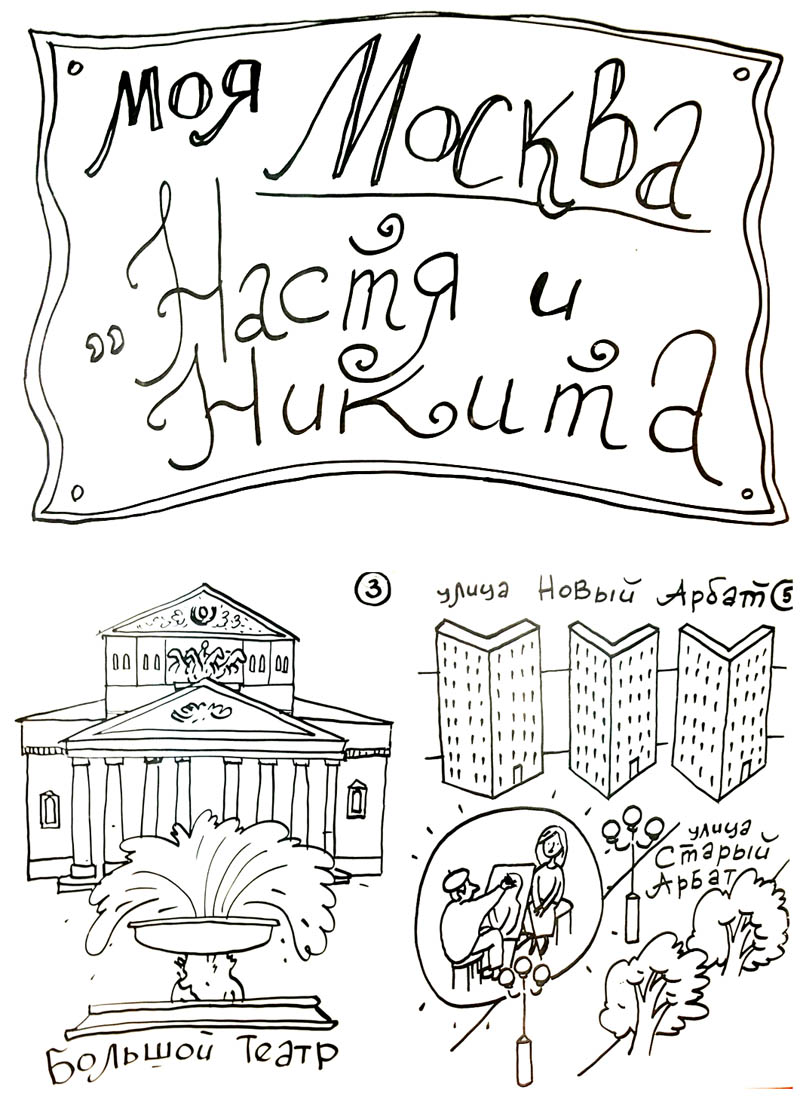 моя Москва
„Настя и
Никита
3
Большой Театр
улица Новый Арбат 5
улица
Старый
Арбат